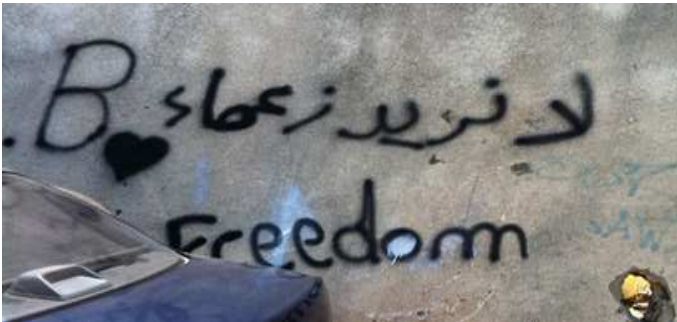 لا نريد زعماء B.
Freedom